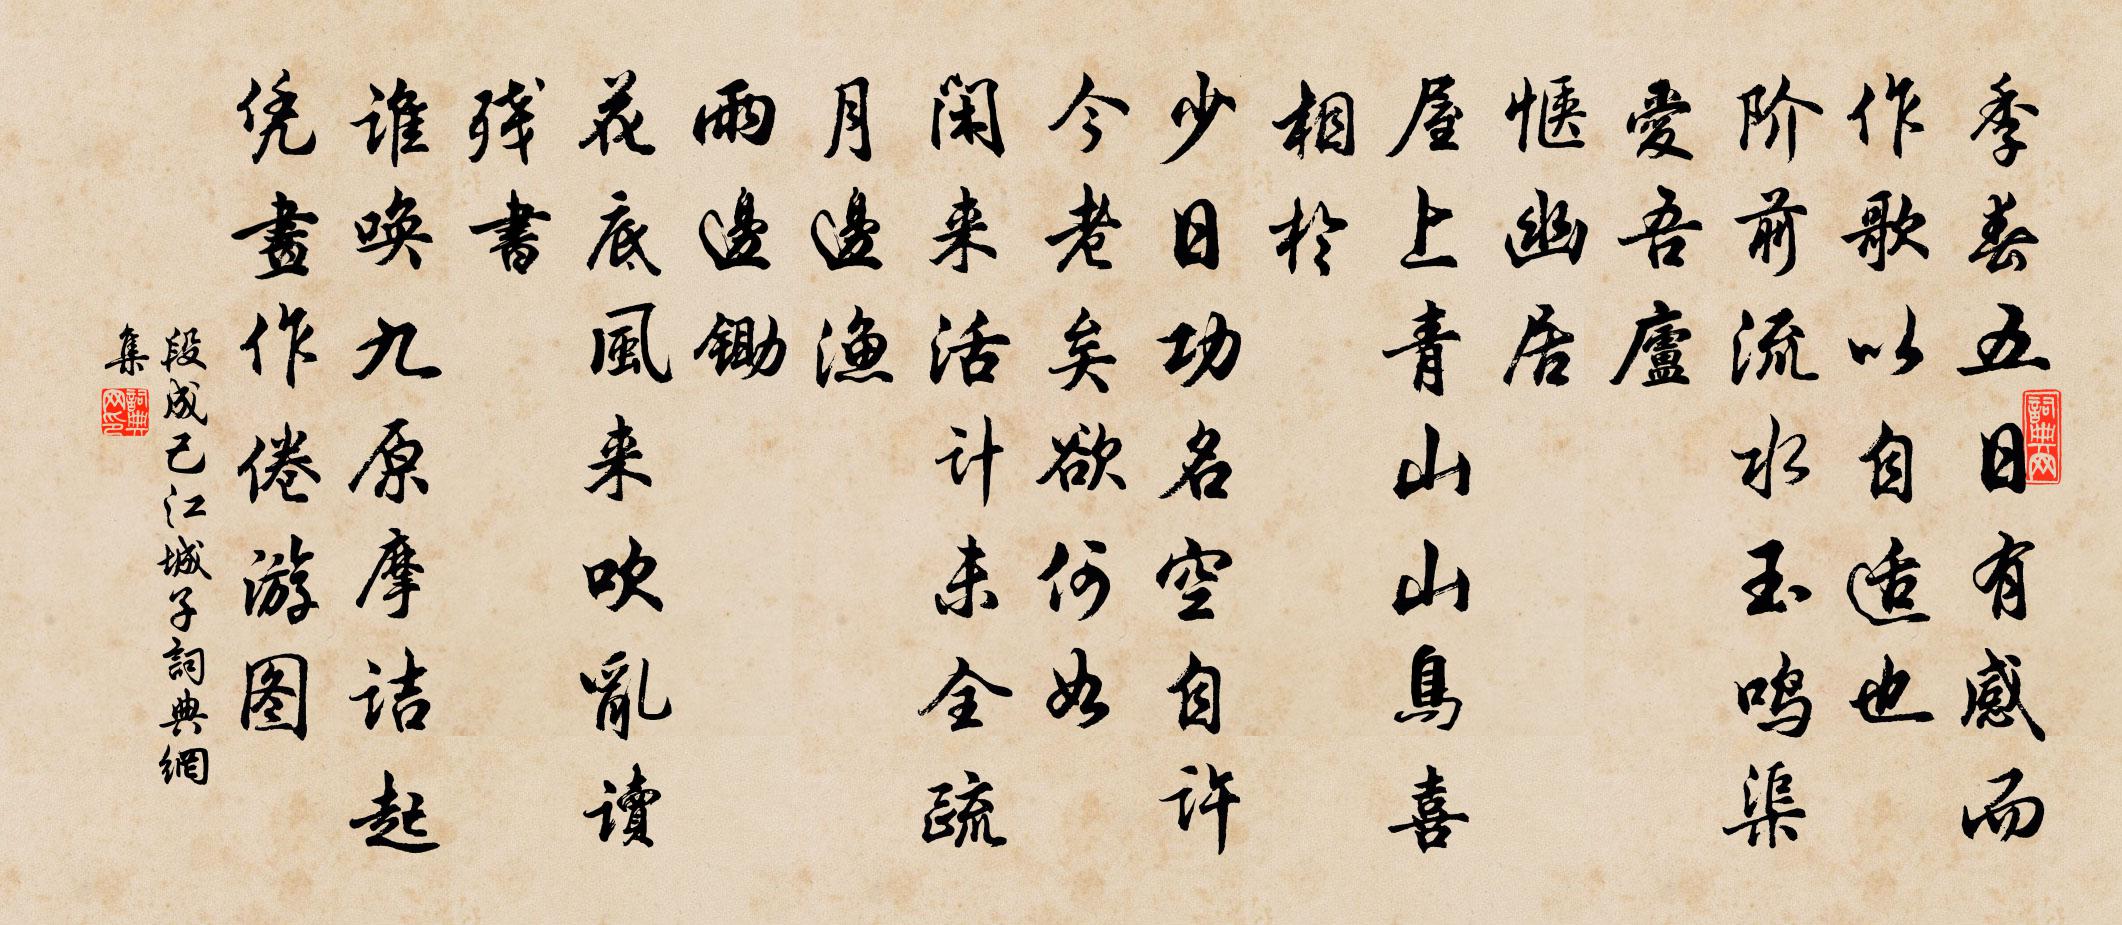 季春五日有感而
作歌以自适也
阶前流水玉鸣渠
愛吾廬
惬幽居
屋上青山山鳥喜
相於
少日功名空自许
今老矣欲何如
闲来活计未全疏
月邊渔
雨邊锄
花底風来吹亂读
残書
谁唤九原摩诘起
凭畫作倦游图
段成己江城子詞典網
集
詞典网
詞典网印